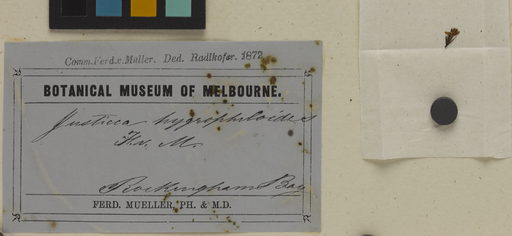 Comm. Ferd. v. Müller. Ded. Radlkofer. 1872
BOTANICAL MUSEUM OF MELBOURNE.
Justicia hygrophiloides
F. v. M.
Rockingham Bay
FERD. MUELLER, PH. & M.D.